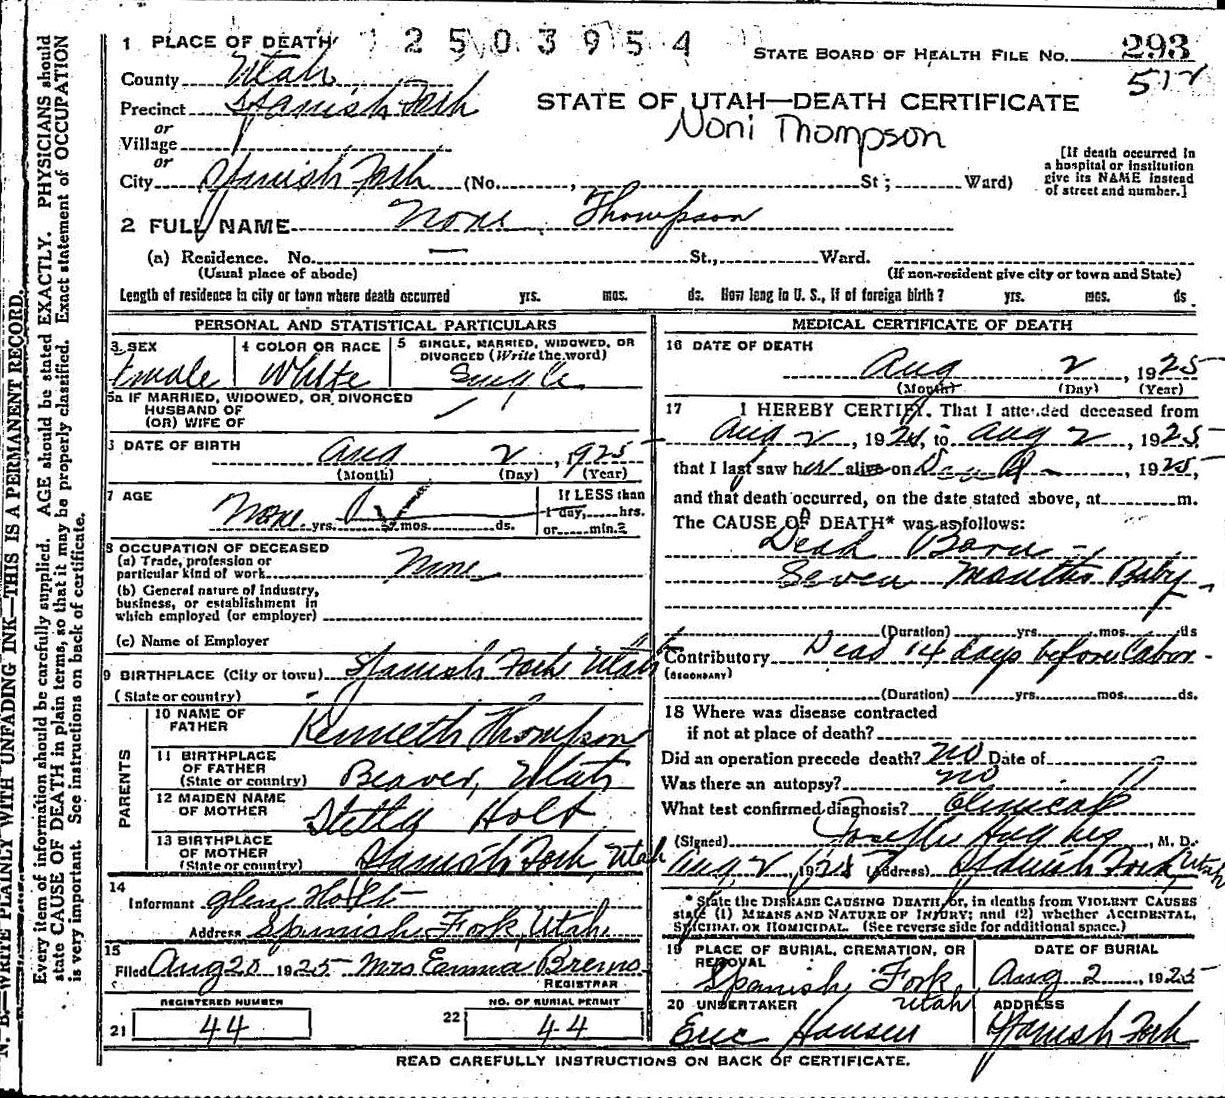 1 PLACE OF DEATH 2503954 STATE BOARD OF HEALTH FILE NO. 293
County Utah 512
Precinct Spanish Fork STATE OF UTAH—DEATH CERTIFICATE
or Noni Thompson
Village
or
City Spanish Fork (No. , St; Ward) [If death occurred in a hospital or institution give its NAME instead of street and number.]
2 FULL NAME None Thompson
(a) Residence. No. St., Ward.
(Usual place of abode) (If non-resident give city or town and State)
Length of residence in city or town where death occurred yrs. mos. ds. How long in U. S., if of foreign birth? yrs. mos. ds
PERSONAL AND STATISTICAL PARTICULARS
3 SEX 4 COLOR OR RACE 5 SINGLE, MARRIED, WIDOWED, OR DIVORCED (Write the word)
Female White Single
5a IF MARRIED, WIDOWED, OR DIVORCED
HUSBAND OF
(OR) WIFE OF
DATE OF BIRTH
Aug 2, 1925
(Month) (Day) (Year)
7 AGE If LESS than
None yrs. mos. ds. 1 day, hrs.
or min.?
8 OCCUPATION OF DECEASED
(a) Trade, profession or
particular kind of work None
(b) General nature of industry,
business, or establishment in
which employed (or employer)
(c) Name of Employer
9 BIRTHPLACE (City or town) Spanish Fork Utah
(State or country)
PARENTS
10 NAME OF FATHER Kenneth Thompson
11 BIRTHPLACE OF FATHER (State or country) Beaver, Utah
12 MAIDEN NAME OF MOTHER Holt
13 BIRTHPLACE OF MOTHER (State or country) Spanish Fork, Utah
14
Informant Glen Holt
Address Spanish Fork, Utah
15
Filed Aug 20 1925 Mrs Emma Brems
REGISTRAR
REGISTERED NUMBER NO. OF BURIAL PERMIT
21 44 22 44
MEDICAL CERTIFICATE OF DEATH
16 DATE OF DEATH
Aug 2, 1925
(Month) (Day) (Year)
17 I HEREBY CERTIFY, That I attended deceased from
Aug 2, 192 , to Aug 2, 1925
that I last saw her alive on , 1925,
and that death occurred, on the date stated above, at m.
The CAUSE OF DEATH* was as follows:
Dead Born
Seven Months Baby
(Duration) yrs. mos. ds
Contributory Dead 14 days before Labor
(SECONDARY)
(Duration) yrs. mos. ds.
18 Where was disease contracted
if not at place of death?
Did an operation precede death? no Date of
Was there an autopsy? no
What test confirmed diagnosis? Clinical
(Signed) Hughes, M. D.
Aug 2, 192 (Address) Spanish Fork, Utah
* State the DISEASE CAUSING DEATH, or, in deaths from VIOLENT CAUSES
state (1) MEANS AND NATURE OF INJURY; and (2) whether ACCIDENTAL,
SUICIDAL OR HOMICIDAL. (See reverse side for additional space.)
19 PLACE OF BURIAL, CREMATION, OR REMOVAL DATE OF BURIAL
Spanish Fork Utah Aug 2 1925
20 UNDERTAKER ADDRESS
Eric Hansen Spanish Fork
READ CAREFULLY INSTRUCTIONS ON BACK OF CERTIFICATE.
N. B.—WRITE PLAINLY WITH UNFADING INK—THIS IS A PERMANENT RECORD.
Every item of information should be carefully supplied. AGE should be stated EXACTLY. PHYSICIANS should
state CAUSE OF DEATH in plain terms, so that it may be properly classified. Exact statement of OCCUPATION
is very important. See instructions on back of certificate.